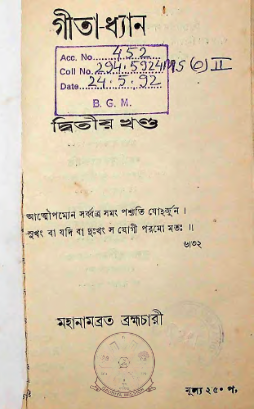 গীতা-ধ্যান
Acc. No. 452
Coll No. 294.5924
Date 24.5.92
B. G. M.
দ্বিতীয় খণ্ড
আত্মৌপম্যেন সর্ব্বত্র সমং পশ্যতি যোহর্জ্জুন।
সুখং বা যদি বা দুঃখং স যোগী পরমো মতঃ ॥
৬৷৩২
মহানামব্রত ব্রহ্মচারী
মূল্য ২৫০ প.